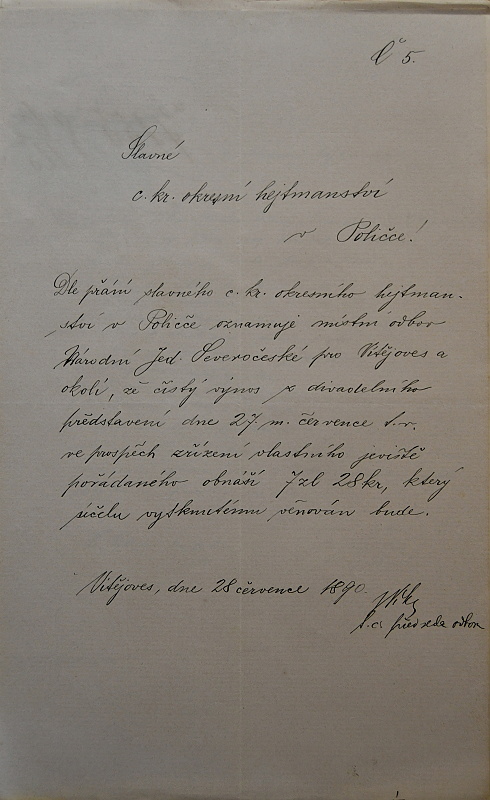 Č 5.
Slavné
c. kr. okresní hejtmanství
v Poličce!
Dle přání slavného c. kr. okresního hejtman-
ství v Poličce oznamuje místní odbor
Národní Jed. Severočeské pro Vítějoves a
okolí, že čistý výnos z divadelního
představení dne 27. m. července t. r.
ve prospěch zřízení vlastního jeviště
pořádaného obnáší 7 zl 28 kr, který
účelu vytknutému věnován bude.
Vítějoves, dne 28 července 1890.
t. č. předseda odboru